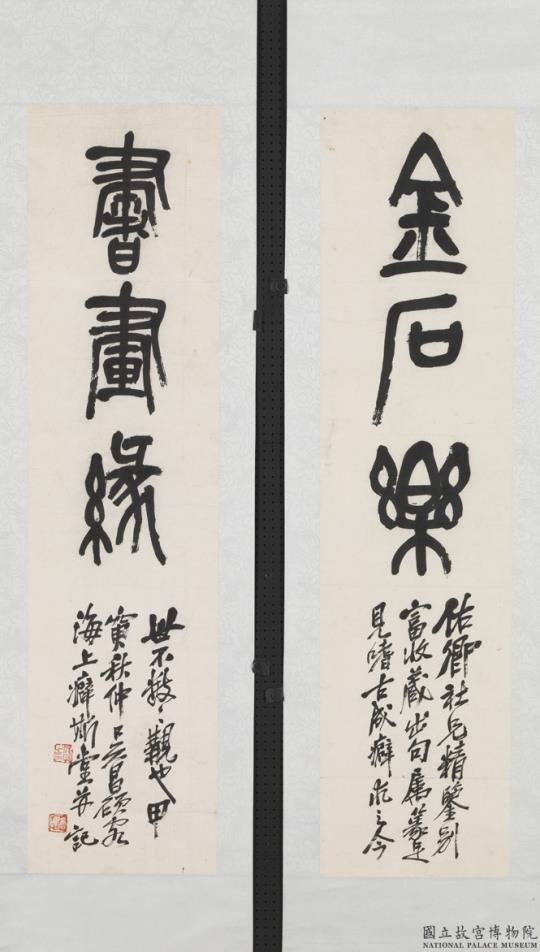 金石樂
佑卿社兄精鑒別
富收藏出句屬篆足
見嗜古成癖求之今
書畫緣
世不數數觀也甲
寅秋仲吳昌碩客
海上癖斯堂并記
國立故宮博物院
NATIONAL PALACE MUSEUM